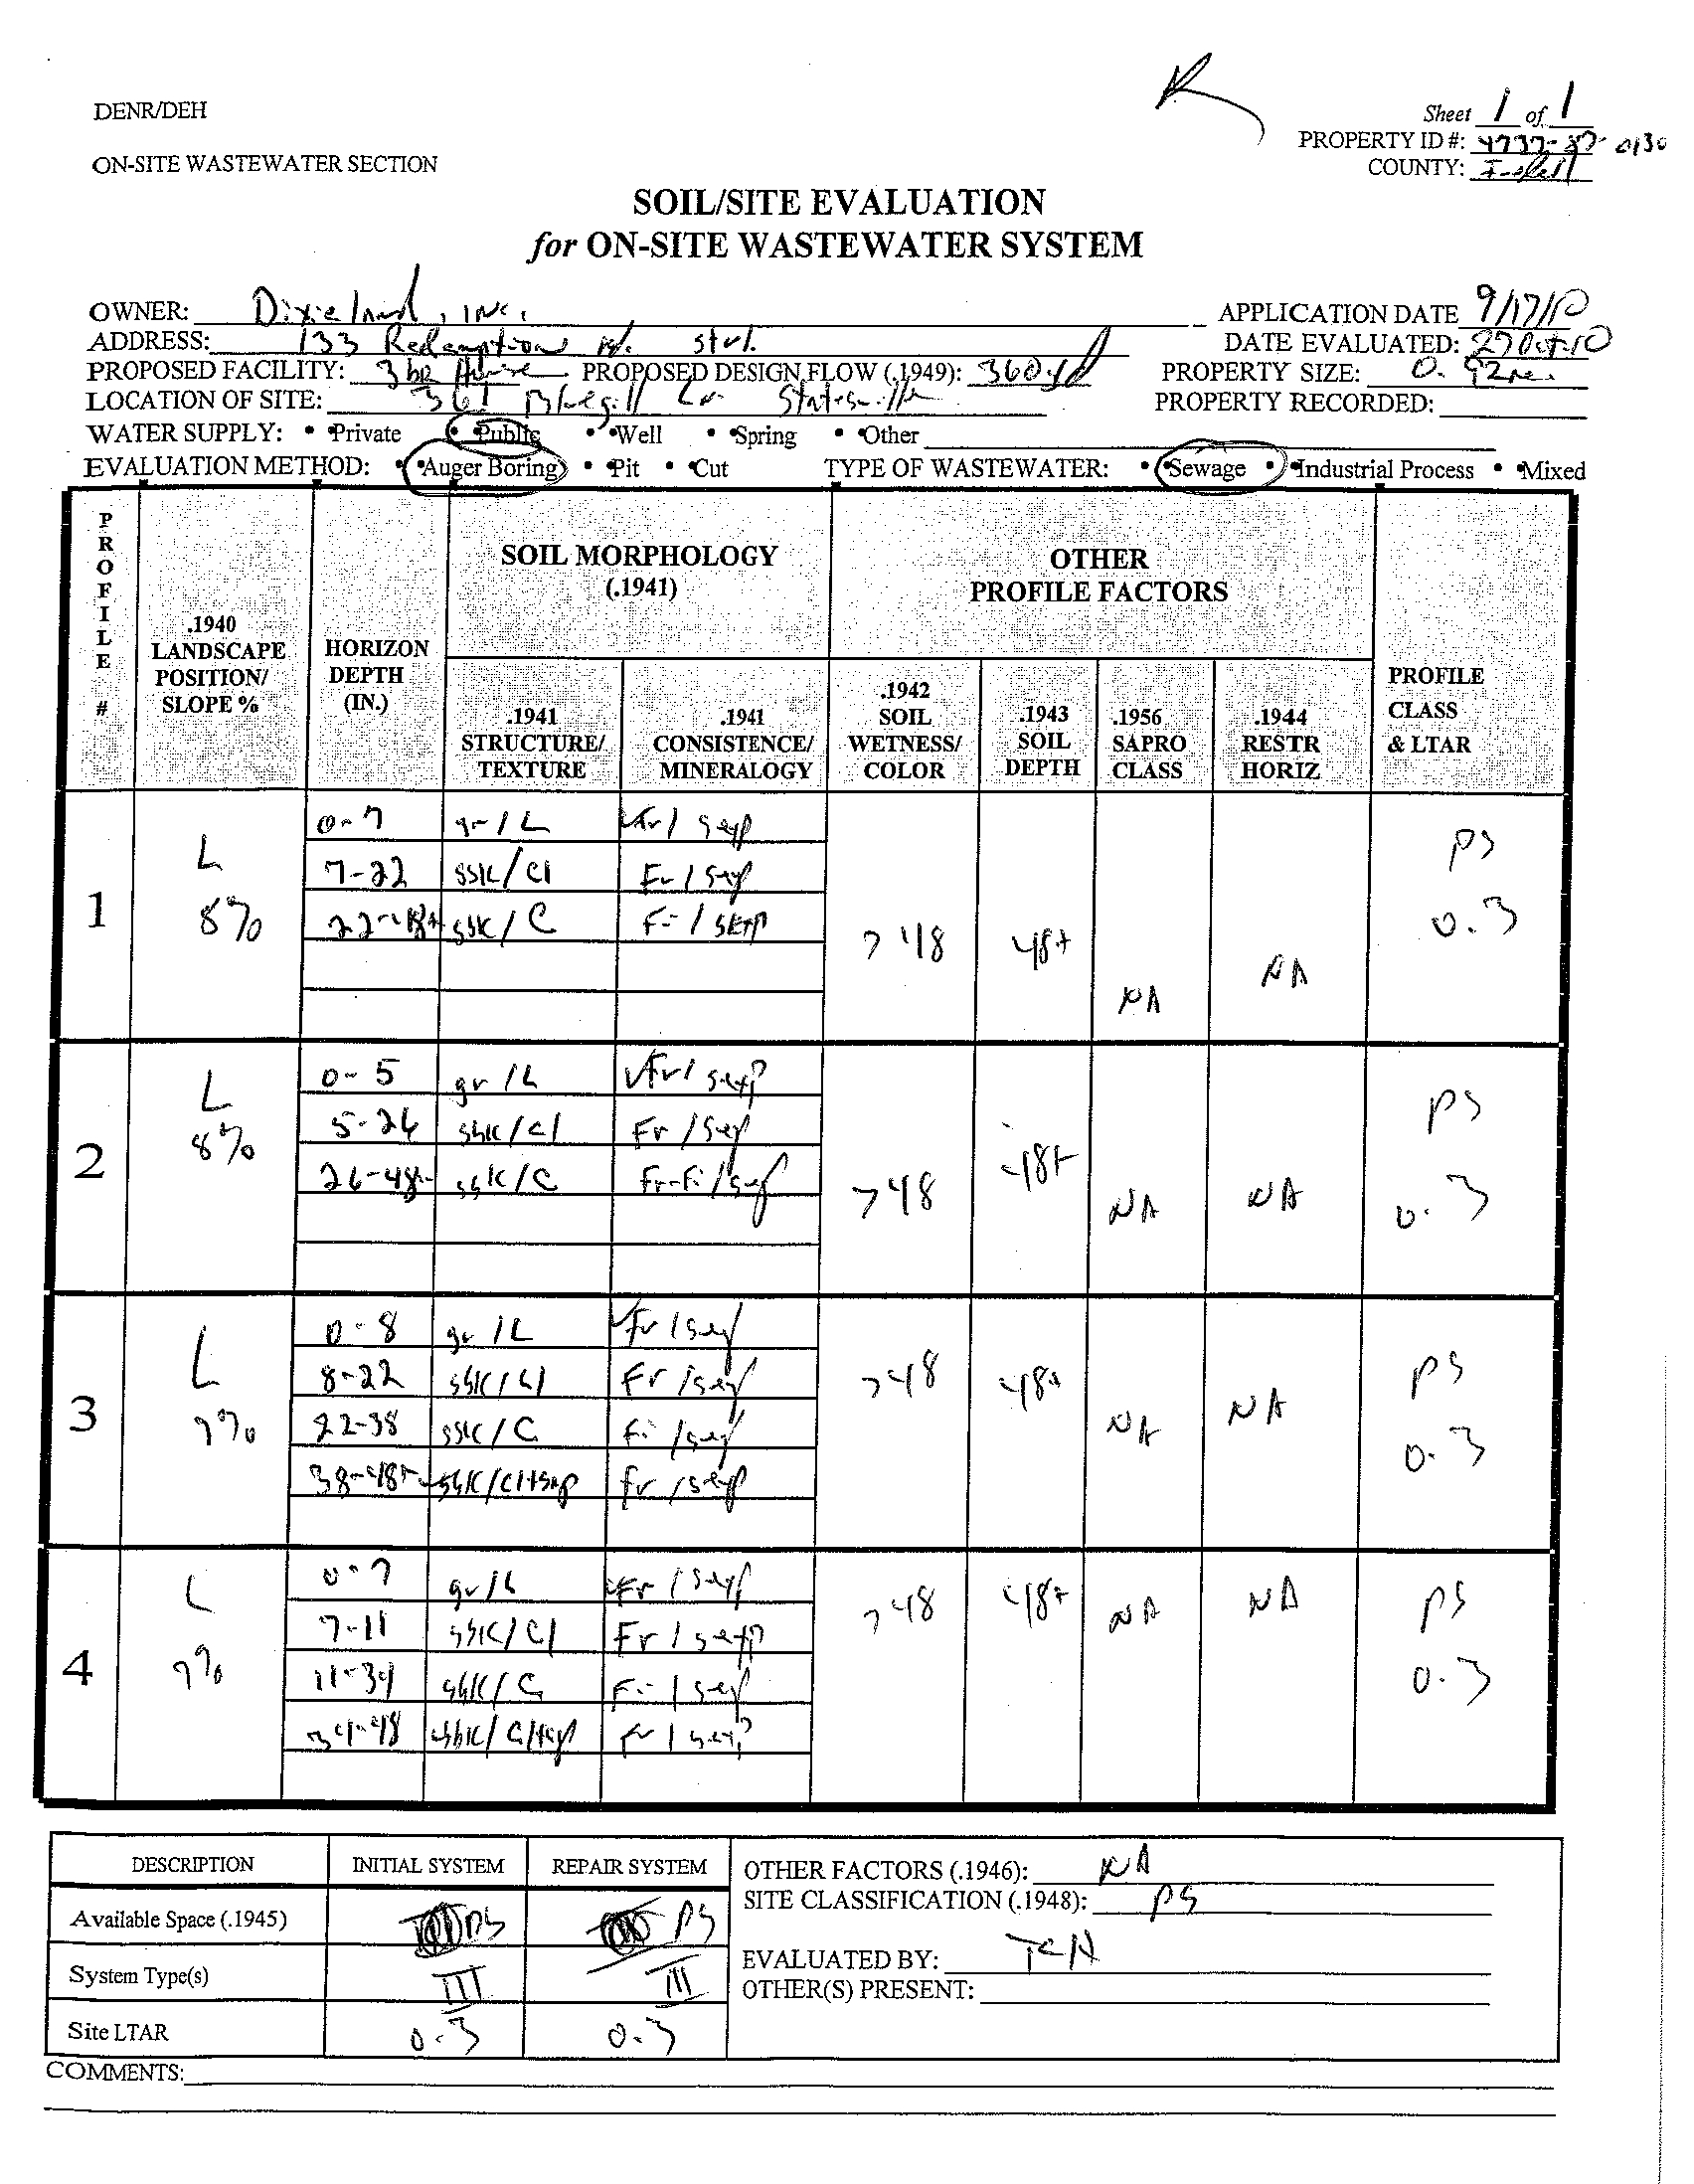 DENR/DEH
Sheet 1 of 1
PROPERTY ID #: 4737-87-0130
ON-SITE WASTEWATER SECTION
COUNTY: Iredell
SOIL/SITE EVALUATION
for ON-SITE WASTEWATER SYSTEM
OWNER: Dixieland, INC.
APPLICATION DATE 9/17/10
ADDRESS: 133 Redemption Rd. Stvl.
DATE EVALUATED: 27 Oct 10
PROPOSED FACILITY: 3 BR House PROPOSED DESIGN FLOW (.1949): 360 gpd PROPERTY SIZE: 0.92 ac.
LOCATION OF SITE: 361 Bluegill Ln. Statesville PROPERTY RECORDED:
WATER SUPPLY: • •Private • •Public • •Well • •Spring • •Other
EVALUATION METHOD: • •Auger Boring • •Pit • •Cut TYPE OF WASTEWATER: • •Sewage • •Industrial Process • •Mixed
PROFILE #
.1940 LANDSCAPE POSITION/ SLOPE %
HORIZON DEPTH (IN.)
SOIL MORPHOLOGY (.1941)
.1941 STRUCTURE/ TEXTURE
.1941 CONSISTENCE/ MINERALOGY
OTHER PROFILE FACTORS
.1942 SOIL WETNESS/ COLOR
.1943 SOIL DEPTH
.1956 SAPRO CLASS
.1944 RESTR HORIZ
PROFILE CLASS & LTAR
1 L 8% >48 48+ NA NA PS 0.3
0-7 gr/L VFr/sexp
7-22 sbk/Cl Fr/sexp
22-48+ sbk/C Fi/sexp
2 L 8% >48 48+ NA NA PS 0.3
0-5 gr/L VFr/sexp
5-26 sbk/Cl Fr/sexp
26-48+ sbk/C Fr-Fi/sexp
3 L 7% >48 48+ NA NA PS 0.3
0-8 gr/L VFr/sexp
8-22 sbk/Cl Fr/sexp
22-38 sbk/C Fi/sexp
38-48+ sbk/Cl+sap Fr/sexp
4 L 7% >48 48+ NA NA PS 0.3
0-7 gr/L VFr/sexp
7-11 sbk/Cl Fr/sexp
11-34 sbk/C Fi/sexp
34-48 sbk/Cl+sap Fr/sexp
DESCRIPTION INITIAL SYSTEM REPAIR SYSTEM
Available Space (.1945) PS PS
System Type(s) III III
Site LTAR 0.3 0.3
OTHER FACTORS (.1946): NA
SITE CLASSIFICATION (.1948): PS
EVALUATED BY: TCH
OTHER(S) PRESENT:
COMMENTS: